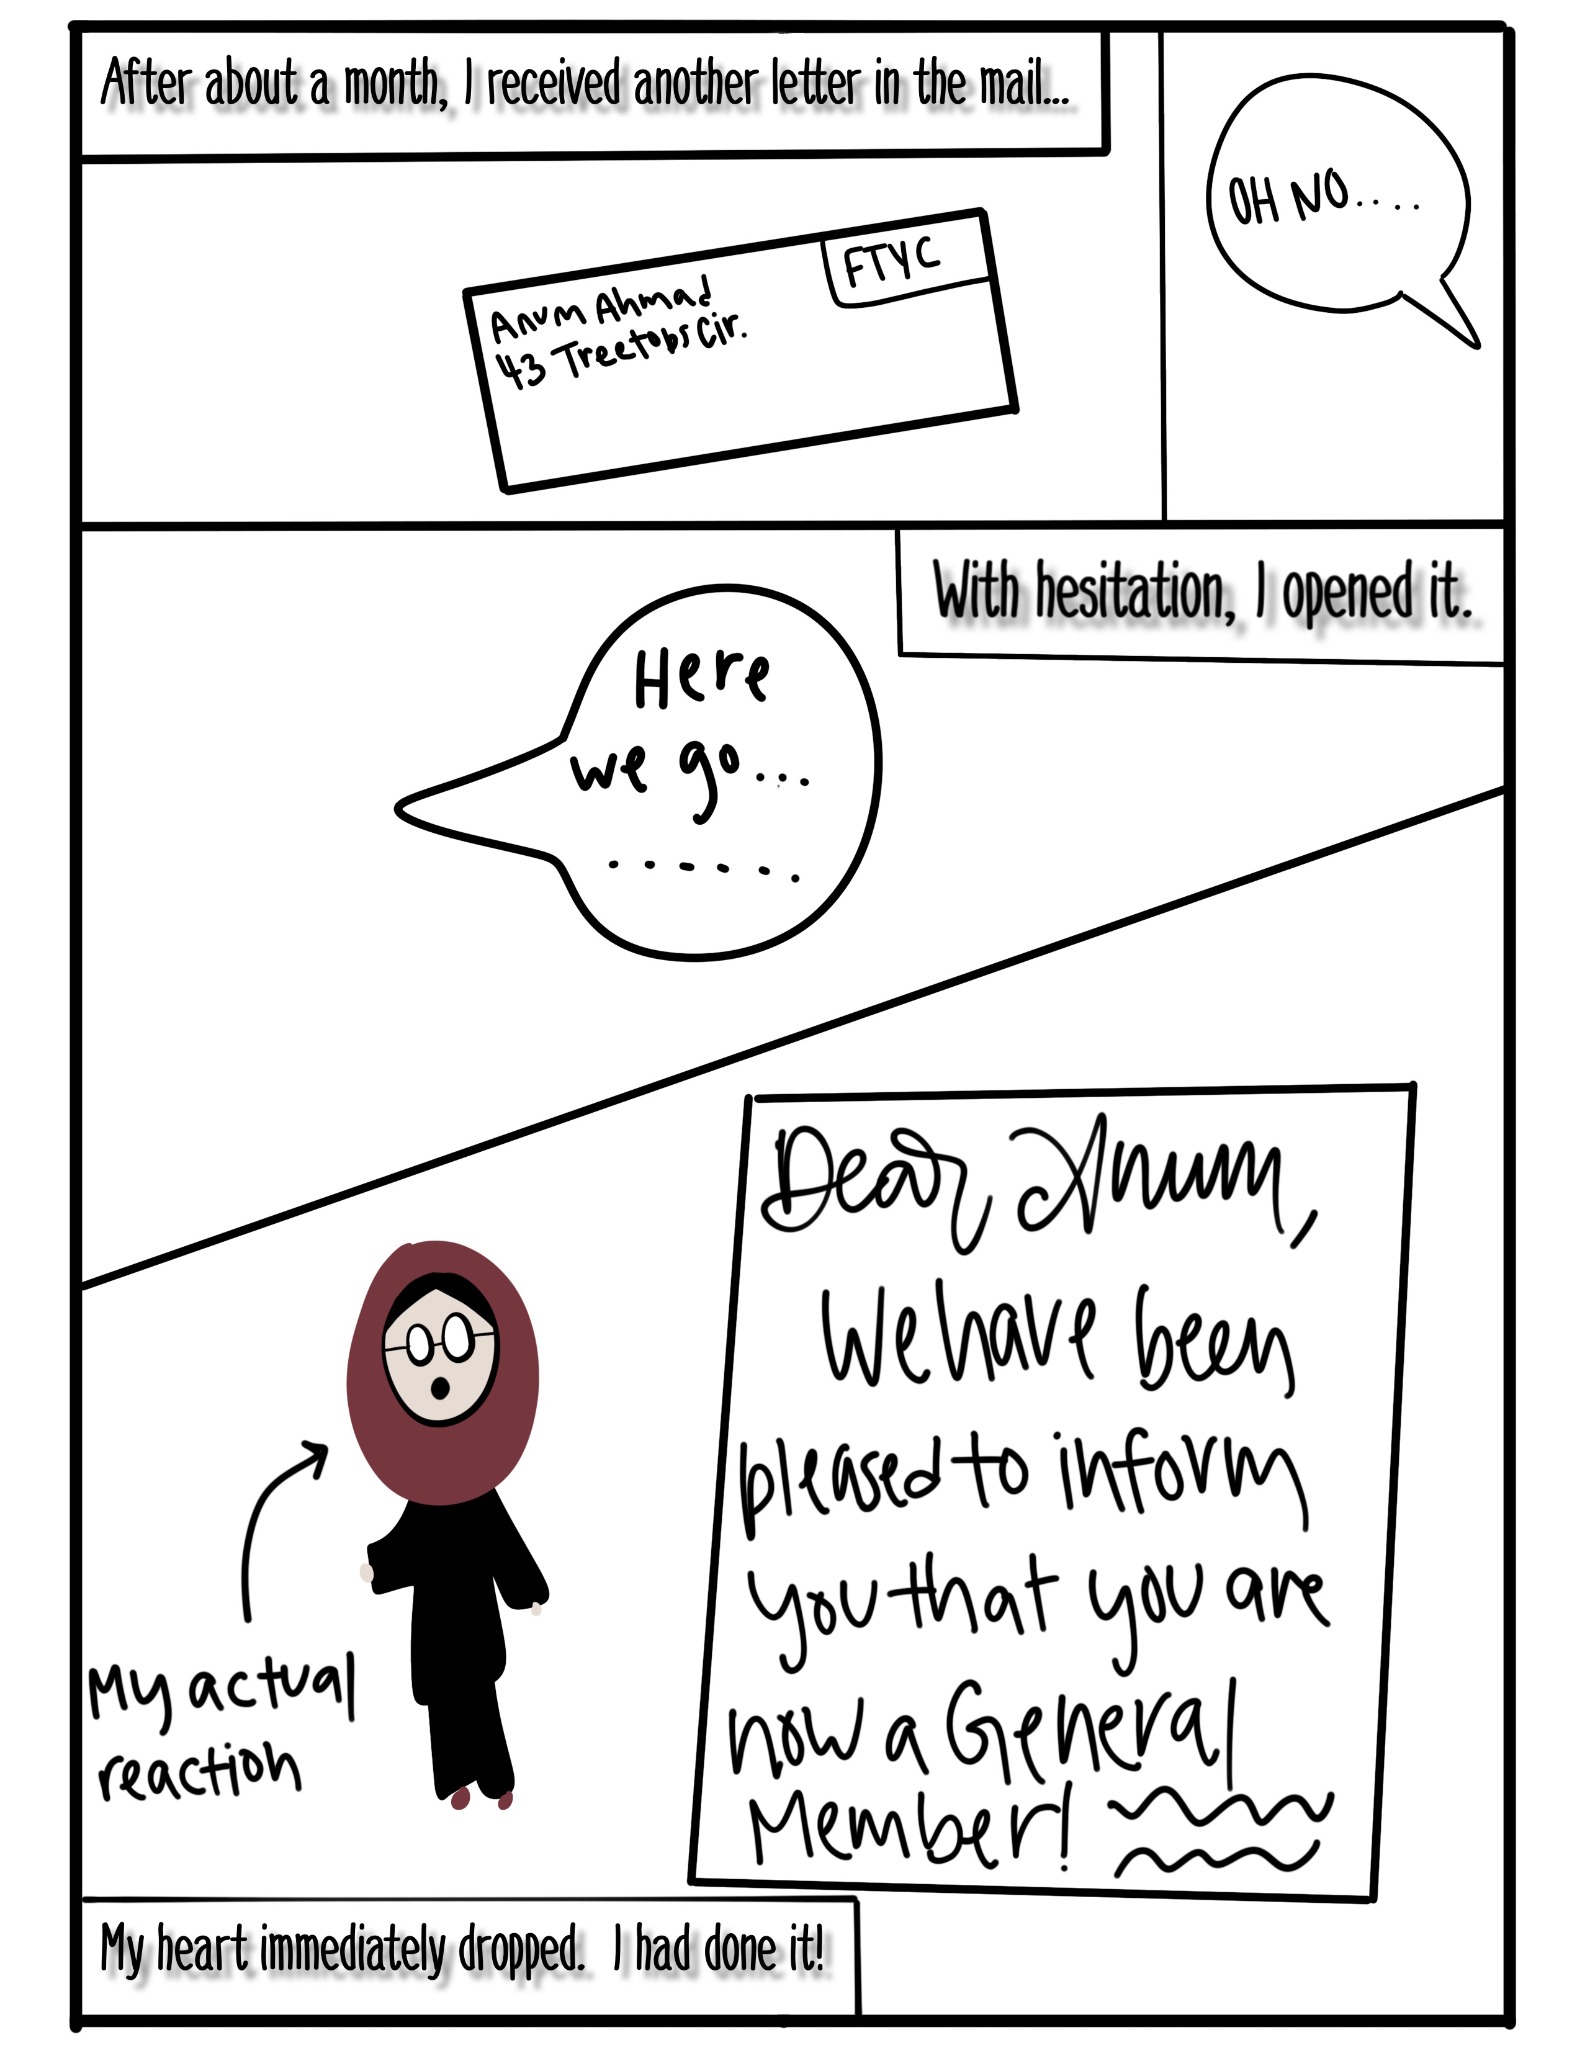 After about a month, I received another letter in the mail...
FTYC
Anum Ahmad
43 Treetops Cir.
OH NO.....
With hesitation, I opened it.
Here
we go...
......
Dear Anum,
We have been
pleased to inform
you that you are
now a General
Member!
My actual
reaction
My heart immediately dropped. I had done it!